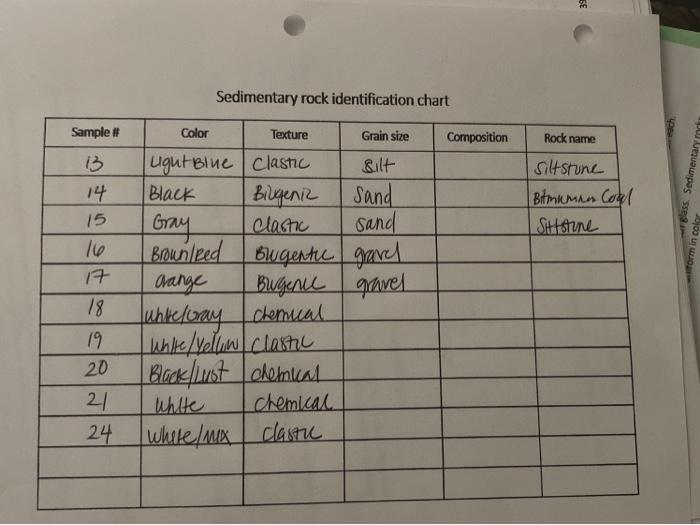 39
Sedimentary rock identification chart
Sample # Color Texture Grain size Composition Rock name
13 Light Blue Clastic Silt Siltstone
14 Black Sand Coal
15 Gray Clastic sand
16 Brown/Red gravel
17 orange gravel
18 white/Gray chemical
19 white/Yellow clastic
20 Black/ chemical
21 white chemical
24 white/mix clastic
each.
glass. Sedimentary
form in color